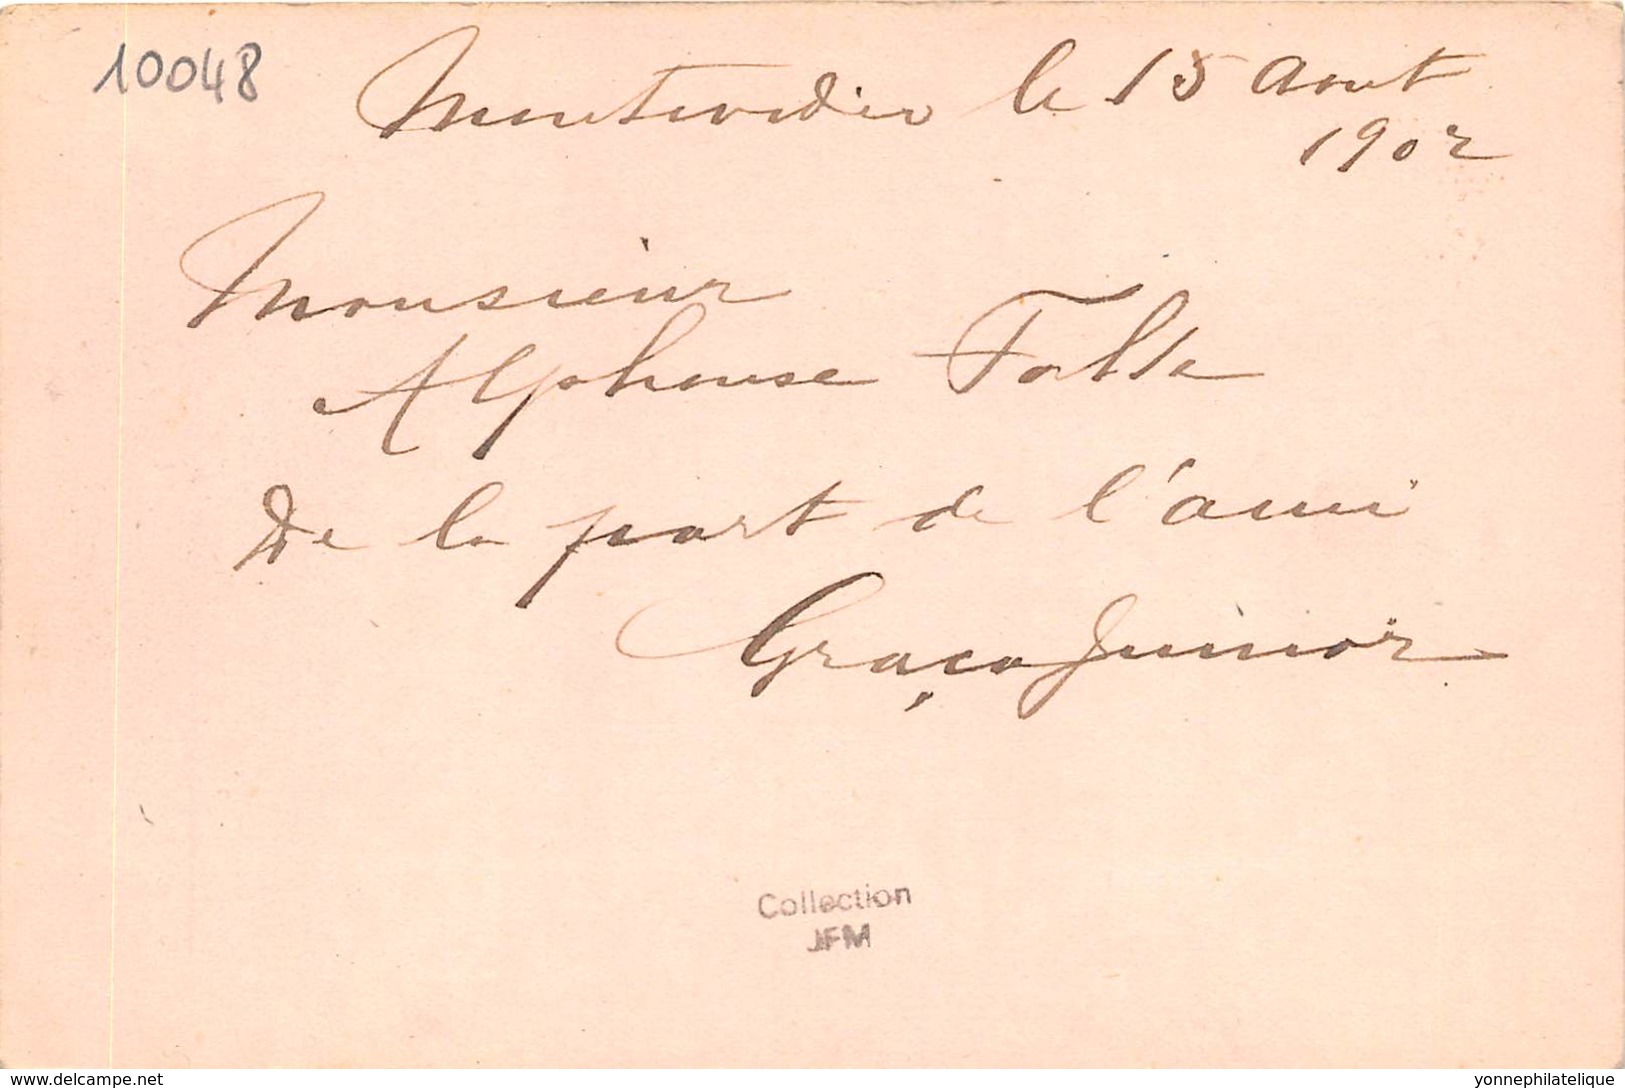 10048
Montevideo le 15 Aout
1902
Monsieur
Alphonse Falle
De la part de l'ami
Graça Junior
Collection
JFM
www.delcampe.net
yonnephilatelique